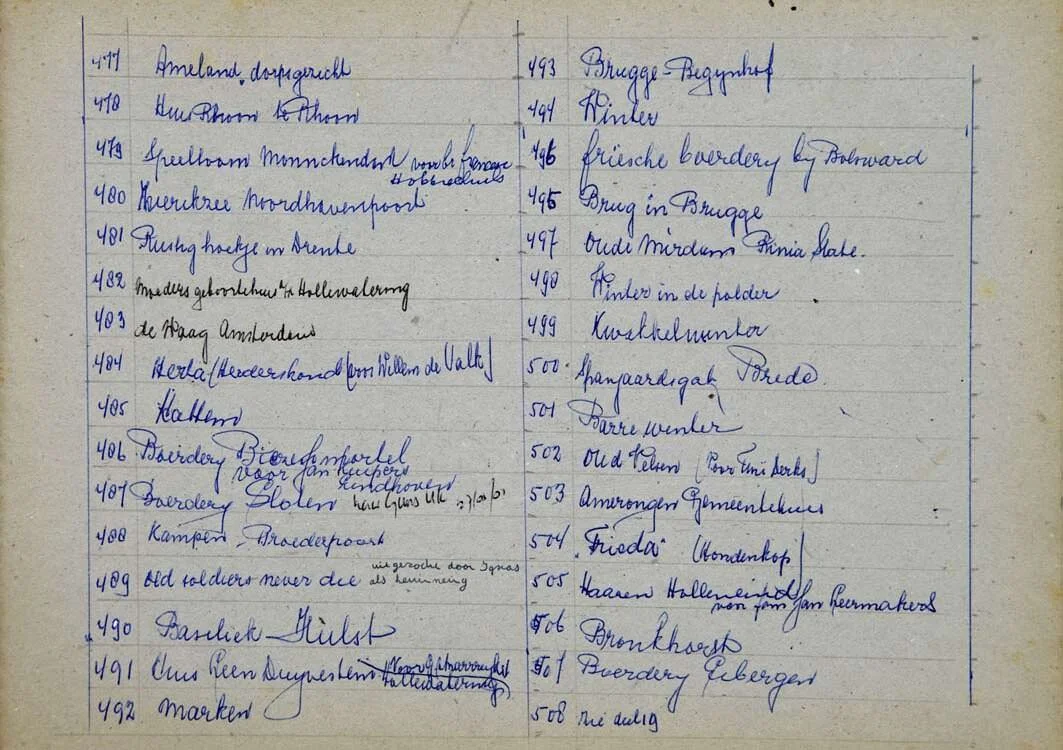 477 Ameland, dorpsgezicht
478 Huis Rhoon te Rhoon
479 Speeltoorn Monnickendam voor br.
Hobbrechuis
480 Zierikzee Noordhavenpoort
481 Rustig hoekje in Drente
482 moeders geboortehuis Hollewatering
483 de Waag Amsterdam
484 Herta (Herdershond) voor Willem de Valk)
485 Hattem
486 Boerdery Biezenmortel
voor Jan Kuipers
Eindhoven
487 Boerdery Sloten
488 Kampen - Broederpoort
489 old soldiers never die uitgezocht door Ignas
als herinnering
490 Basiliek - Hulst
491 Huis Leen Duyvesteyn
Hollewatering)
492 Marken
493 Brugge - Begynhof
494 Winter
496 friesche boerdery by Bolsward
495 Brug in Brugge
497 Oude Mirdum Rinia State.
498 Winter in de polder
499 Kwakkelwinter
500 Spanjaardsgat Breda.
501 Barre winter
502 Oud Velsen (voor Tini Derks)
503 Amerongen Gemeentehuis
504 "Frieda" (Hondenkop)
505 Haaren Holleneind
voor Jan Leermakers
506 Bronkhorst
507 Boerdery Eibergen
508 zie deel 19